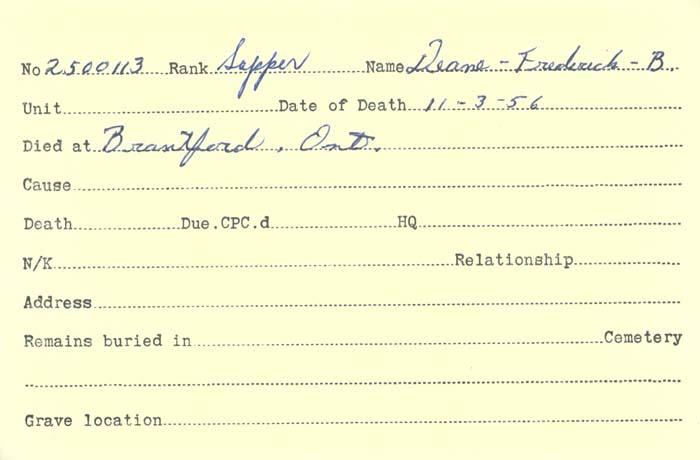 No 2500113 Rank Sapper Name Deane - Frederick - B.
Unit Date of Death 11-3-56
Died at Brantford, Ont.
Cause
Death Due.CPC.d HQ
N/K Relationship
Address
Remains buried in Cemetery
Grave location